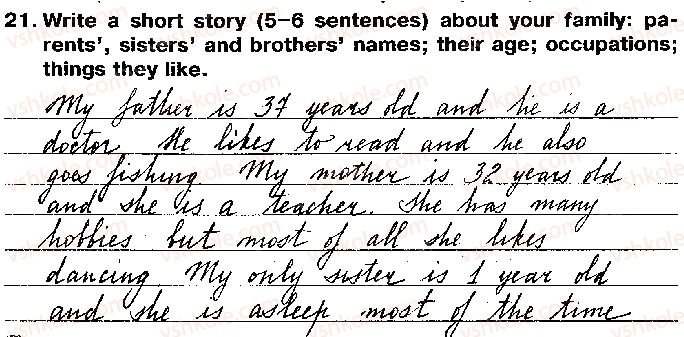 21. Write a short story (5–6 sentences) about your family: pa-
rents', sisters' and brothers' names; their age; occupations;
things they like.
My father is 37 years old and he is a
doctor He likes to read and he also
goes fishing My mother is 32 years old
and she is a teacher. She has many
hobbies but most of all she likes
dancing My only sister is 1 year old
and she is asleep most of the time